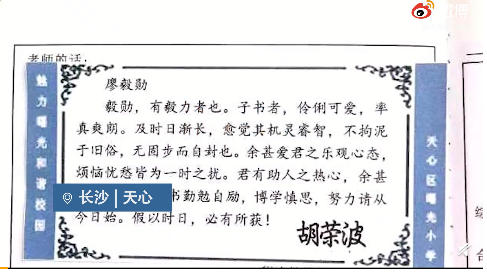 老师的话：
廖毅勋
毅勋，有毅力者也。子书者，伶俐可爱，率
真爽朗。及时日渐长，愈觉其机灵睿智，不拘泥
于旧俗，无固步而自封也。余甚爱君之乐观心态，
烦恼忧愁皆为一时之扰。君有助人之热心，余甚
书勤勉自励，博学慎思，努力请从
今日始。假以时日，必有所获！
胡荣波
魅力曙光和谐校园
天心区曙光小学
长沙 天心